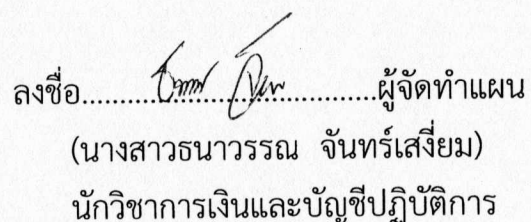 ลงชื่อ....................................ผู้จัดทำแผน
(นางสาวธนาวรรณ จันทร์เสงี่ยม)
นักวิชาการเงินและบัญชีปฏิบัติการ